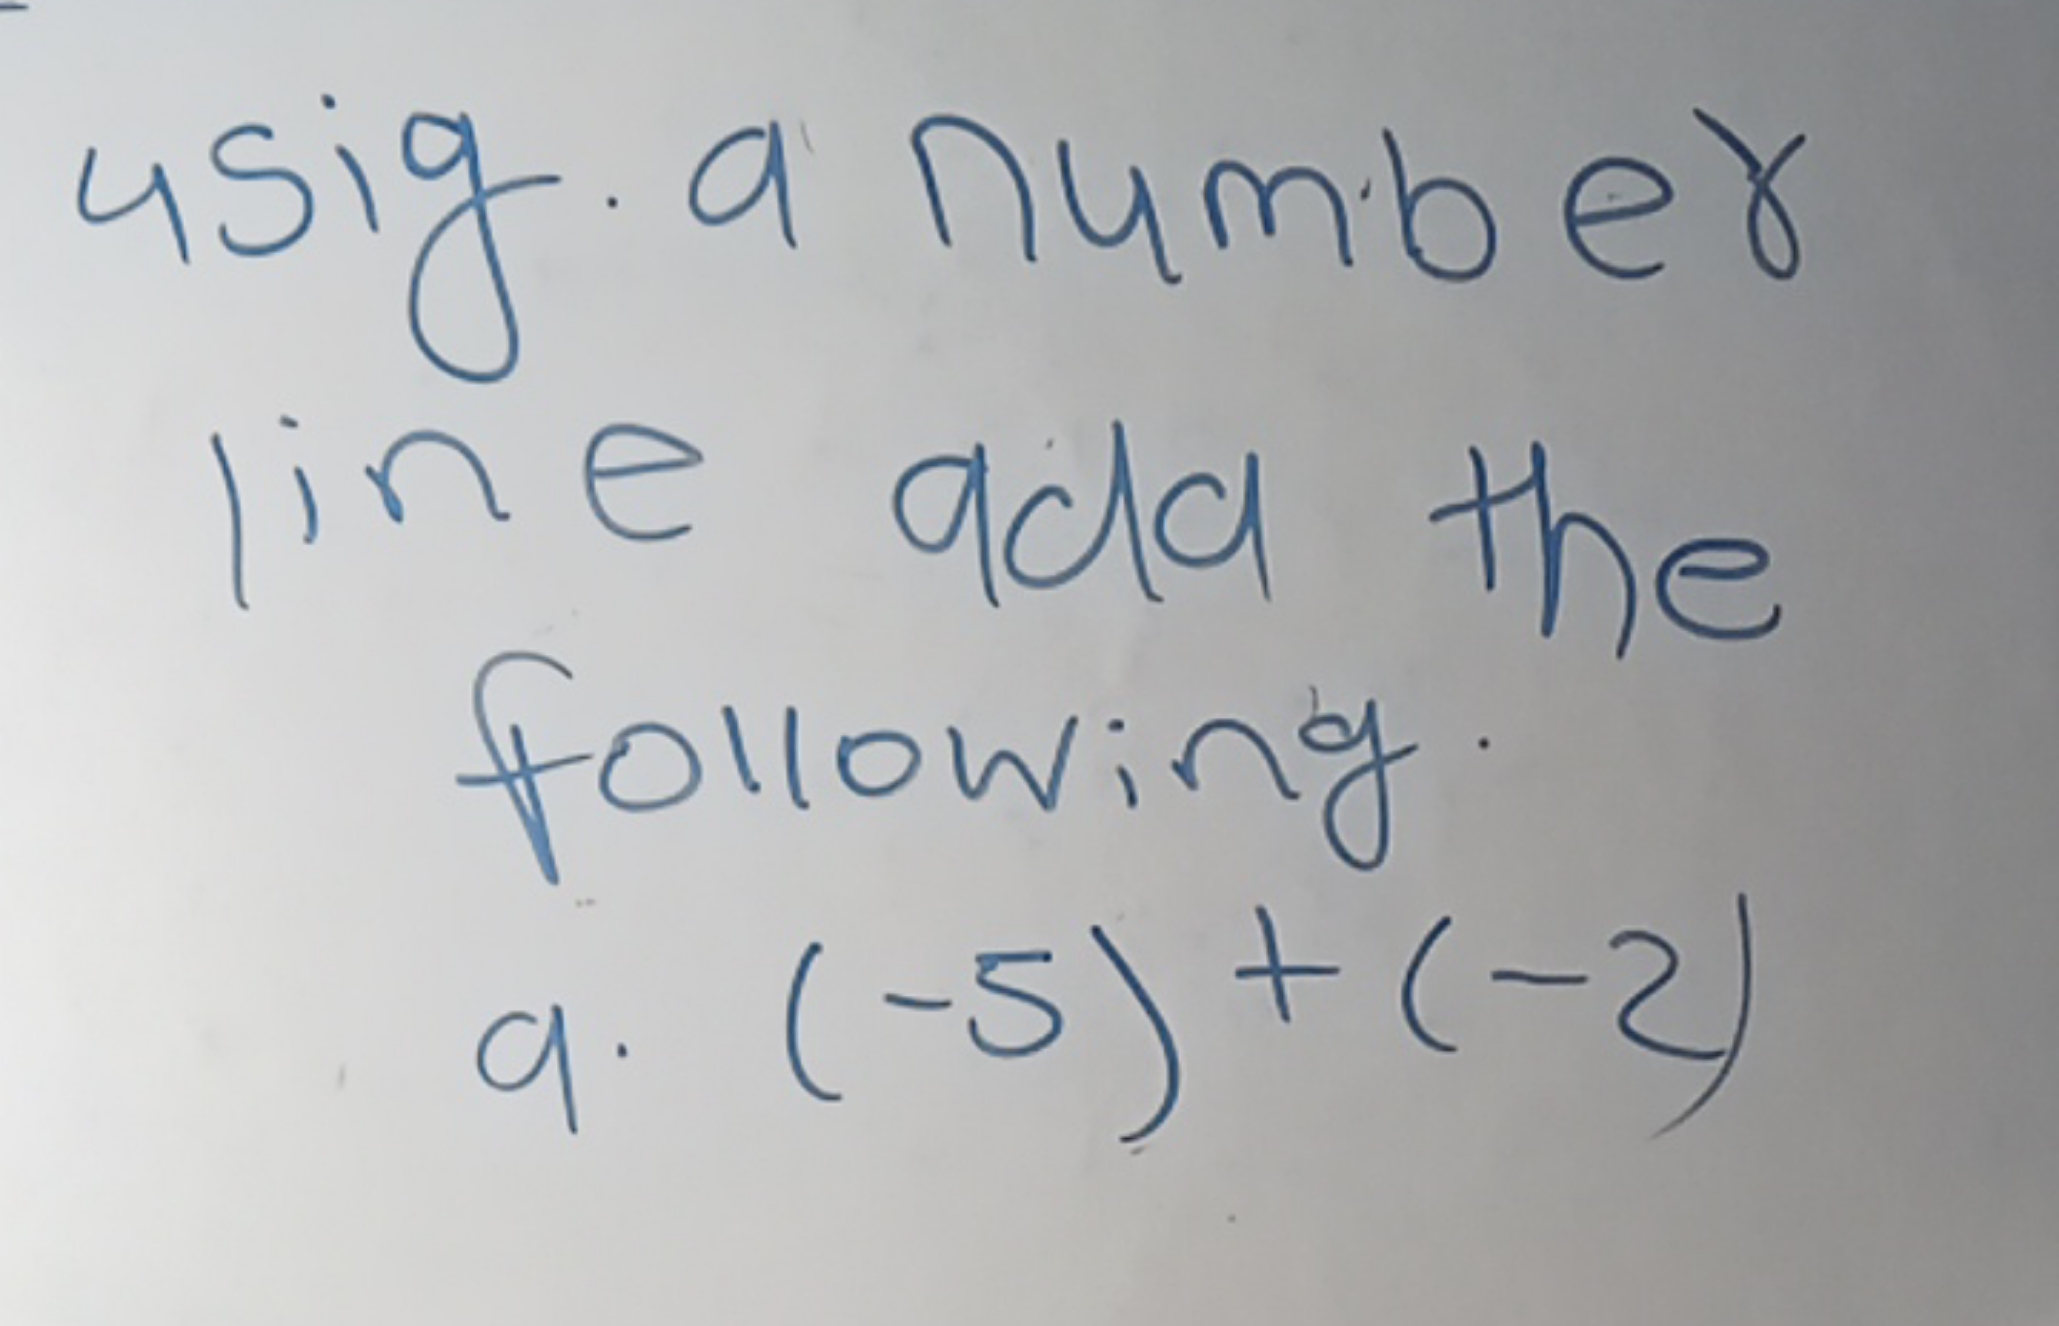 usig. a number
line add the
following.
a. (-5) + (-2)